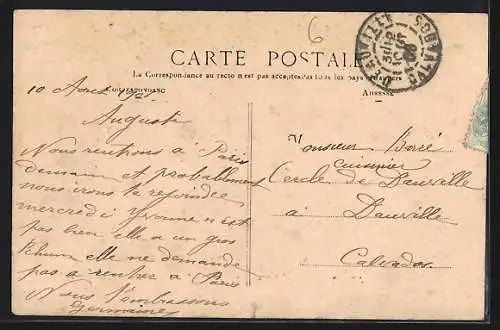 6
CARTE POSTALE
La Correspondance au recto n'est pas acceptée par tous les pays étrangers
CORRESPONDANCE
ADRESSE
10 Août
Auguste
Nous rentrons à Paris
demain et probablement
nous irons te rejoindre
mercredi Yvonne n'est
pas bien elle a un gros
Rhume elle ne demande
pas a rentrer à Paris
Nous t'embrassons
Germaine
Monsieur Borré
cuisinier
Cercle de Deauville
à
Deauville
Calvados